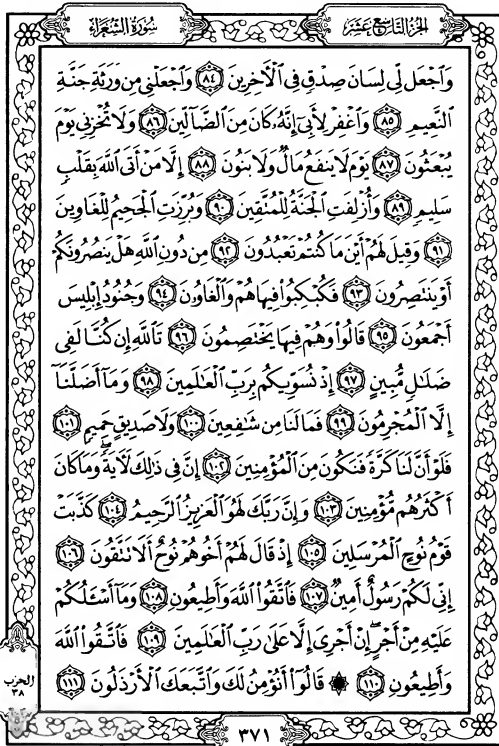 الجزء التاسع عشر
سورة الشعراء
وَٱجْعَل لِّى لِسَانَ صِدْقٍ فِى ٱلْءَاخِرِينَ ٨٤ وَٱجْعَلْنِى مِن وَرَثَةِ جَنَّةِ
ٱلنَّعِيمِ ٨٥ وَٱغْفِرْ لِأَبِىٓ إِنَّهُۥ كَانَ مِنَ ٱلضَّآلِّينَ ٨٦ وَلَا تُخْزِنِى يَوْمَ
يُبْعَثُونَ ٨٧ يَوْمَ لَا يَنفَعُ مَالٌ وَلَا بَنُونَ ٨٨ إِلَّا مَنْ أَتَى ٱللَّهَ بِقَلْبٍ
سَلِيمٍ ٨٩ وَأُزْلِفَتِ ٱلْجَنَّةُ لِلْمُتَّقِينَ ٩٠ وَبُرِّزَتِ ٱلْجَحِيمُ لِلْغَاوِينَ
٩١ وَقِيلَ لَهُمْ أَيْنَ مَا كُنتُمْ تَعْبُدُونَ ٩٢ مِن دُونِ ٱللَّهِ هَلْ يَنصُرُونَكُمْ
أَوْ يَنتَصِرُونَ ٩٣ فَكُبْكِبُوا۟ فِيهَا هُمْ وَٱلْغَاوُۥنَ ٩٤ وَجُنُودُ إِبْلِيسَ
أَجْمَعُونَ ٩٥ قَالُوا۟ وَهُمْ فِيهَا يَخْتَصِمُونَ ٩٦ تَٱللَّهِ إِن كُنَّا لَفِى
ضَلَٰلٍ مُّبِينٍ ٩٧ إِذْ نُسَوِّيكُم بِرَبِّ ٱلْعَٰلَمِينَ ٩٨ وَمَآ أَضَلَّنَآ
إِلَّا ٱلْمُجْرِمُونَ ٩٩ فَمَا لَنَا مِن شَٰفِعِينَ ١٠٠ وَلَا صَدِيقٍ حَمِيمٍ ١٠١
فَلَوْ أَنَّ لَنَا كَرَّةً فَنَكُونَ مِنَ ٱلْمُؤْمِنِينَ ١٠٢ إِنَّ فِى ذَٰلِكَ لَءَايَةً ۖ وَمَا كَانَ
أَكْثَرُهُم مُّؤْمِنِينَ ١٠٣ وَإِنَّ رَبَّكَ لَهُوَ ٱلْعَزِيزُ ٱلرَّحِيمُ ١٠٤ كَذَّبَتْ
قَوْمُ نُوحٍ ٱلْمُرْسَلِينَ ١٠٥ إِذْ قَالَ لَهُمْ أَخُوهُمْ نُوحٌ أَلَا تَتَّقُونَ ١٠٦
إِنِّى لَكُمْ رَسُولٌ أَمِينٌ ١٠٧ فَٱتَّقُوا۟ ٱللَّهَ وَأَطِيعُونِ ١٠٨ وَمَآ أَسْـَٔلُكُمْ
عَلَيْهِ مِنْ أَجْرٍ ۖ إِنْ أَجْرِىَ إِلَّا عَلَىٰ رَبِّ ٱلْعَٰلَمِينَ ١٠٩ فَٱتَّقُوا۟ ٱللَّهَ
وَأَطِيعُونِ ١١٠ ۞ قَالُوٓا۟ أَنُؤْمِنُ لَكَ وَٱتَّبَعَكَ ٱلْأَرْذَلُونَ ١١١
الحزب
٣٨
٣٧١